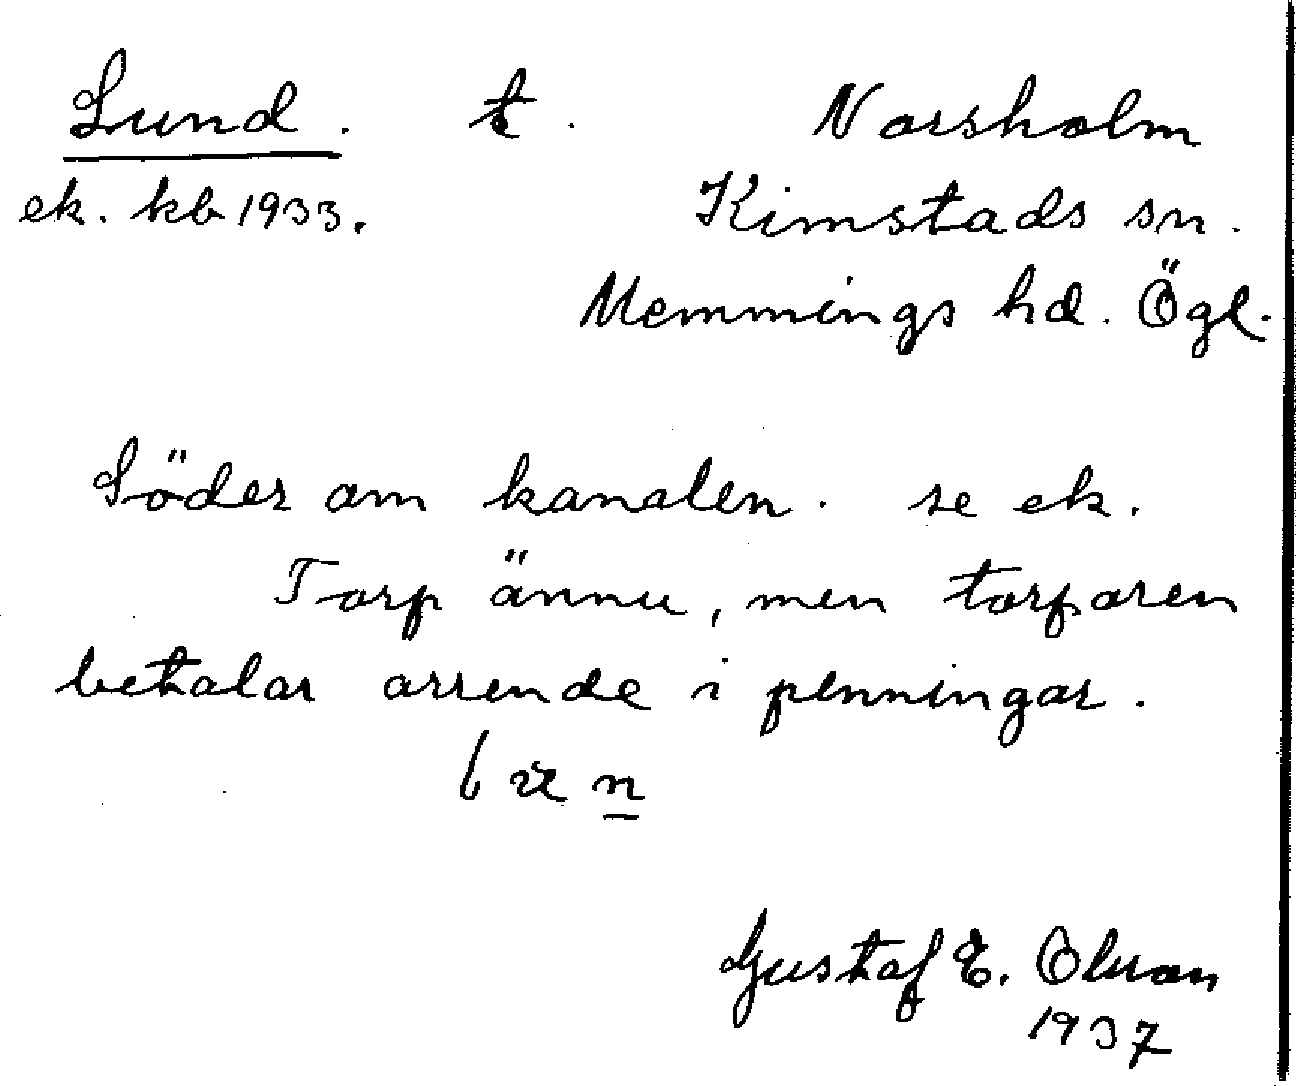 Lund. t. Norsholm
ek. kb 1933. Kimstads sn.
Memmings hd. Ögl.
Söder om kanalen. se ek.
Torp ännu, men torparen
betalar arrende i penningar.
n
Gustaf E. Olsson
1937